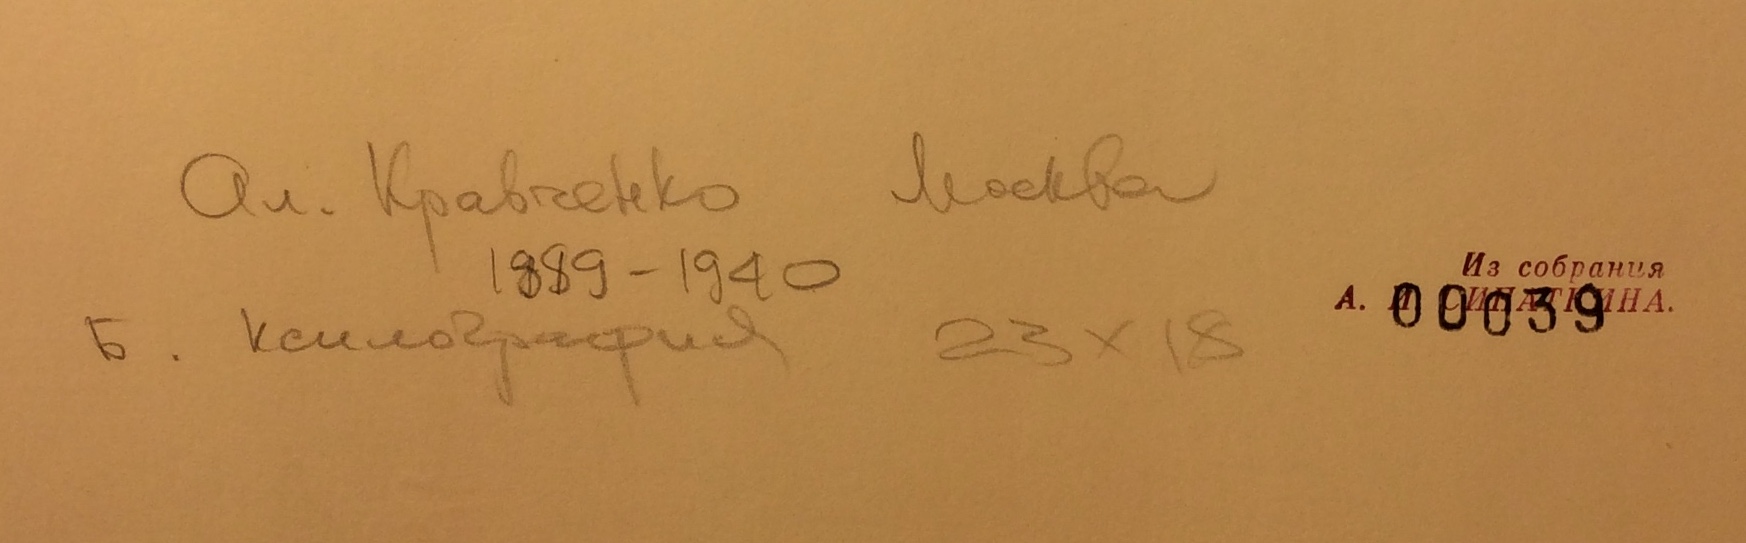 Ал. Кравченко Москва
1889-1940
Б. Ксилография 23 x 18
Из собрания
А. И СИПАТКИНА.
00039